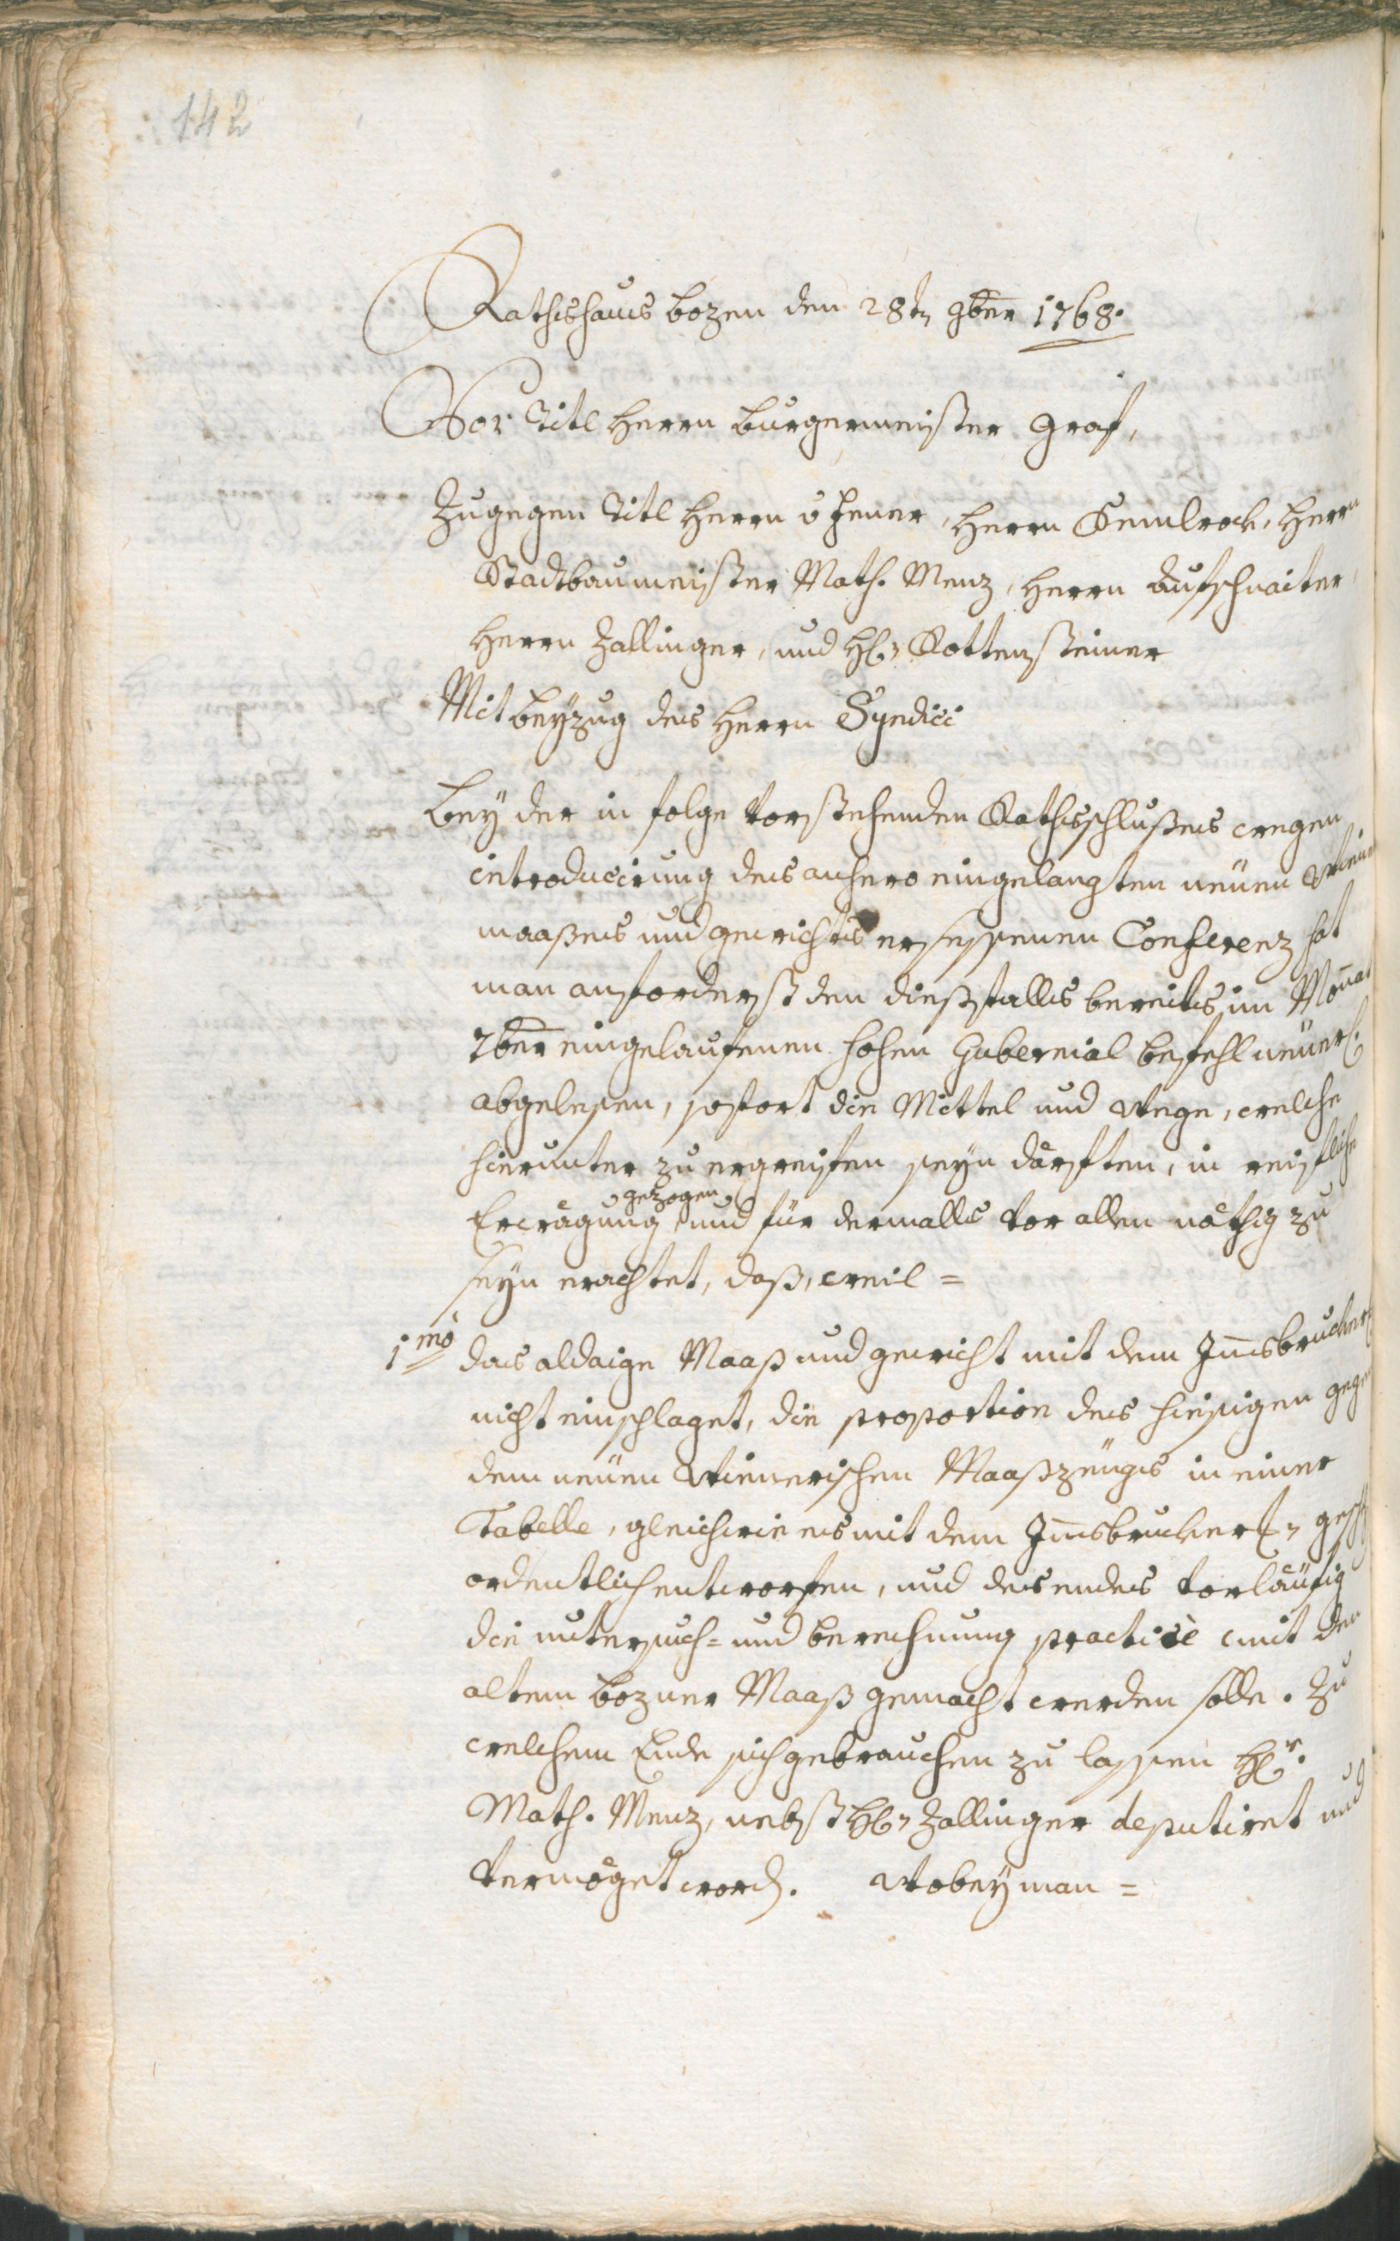 142
Rathshaus Bozen den 28tn 9ber 1768.
Vor Titl Herrn Burgermeister Graf,
Zugegen Titl Herrn v Jener, Herrn Kemlrock, Herrn
Stadtbaumeister Math. Menz, Herrn Aufschnaiter,
Herrn Zallinger, und H: Rottensteiner
Mit beyzug des Herrn Syndici
Bey der in folge vorstehenden Rathsschlußes wegen
introducirung des anhero eingelangten neüen Wien
maaßes und gewichts ersessenen Conferenz hat
man anforderst den dießfalls bereits im Monat
7ber eingelaufenen hohen Gubernial befehl neüerl:
abgelesen, sofort die Mittel und Wege, welche
hierunter zu ergreifen seyn därften, in reifliche
Erwägung gezogen, und für dermalls vor allen nöthig zu
seyn erachtet, daß, weil =
1mo das aldaige Maaß und gewicht mit dem Innsbrucker
nicht einschlaget, die proportion des hiesigen gegen
dem neüen Wienerischen Maaßzeügs in einer
Tabelle, gleichwie es mit dem Innsbrucker
ordentlich entworfen, und des endes vorläufig
die untersuch= und berechnung practicè mit dem
altem bozner Maaß gemacht werden solle. Zu
welchem Ende sich gebrauchen zu lassen Hr.
Math. Menz, nebst H: Zallinger deputiret und
vermöget word. Wobey man =